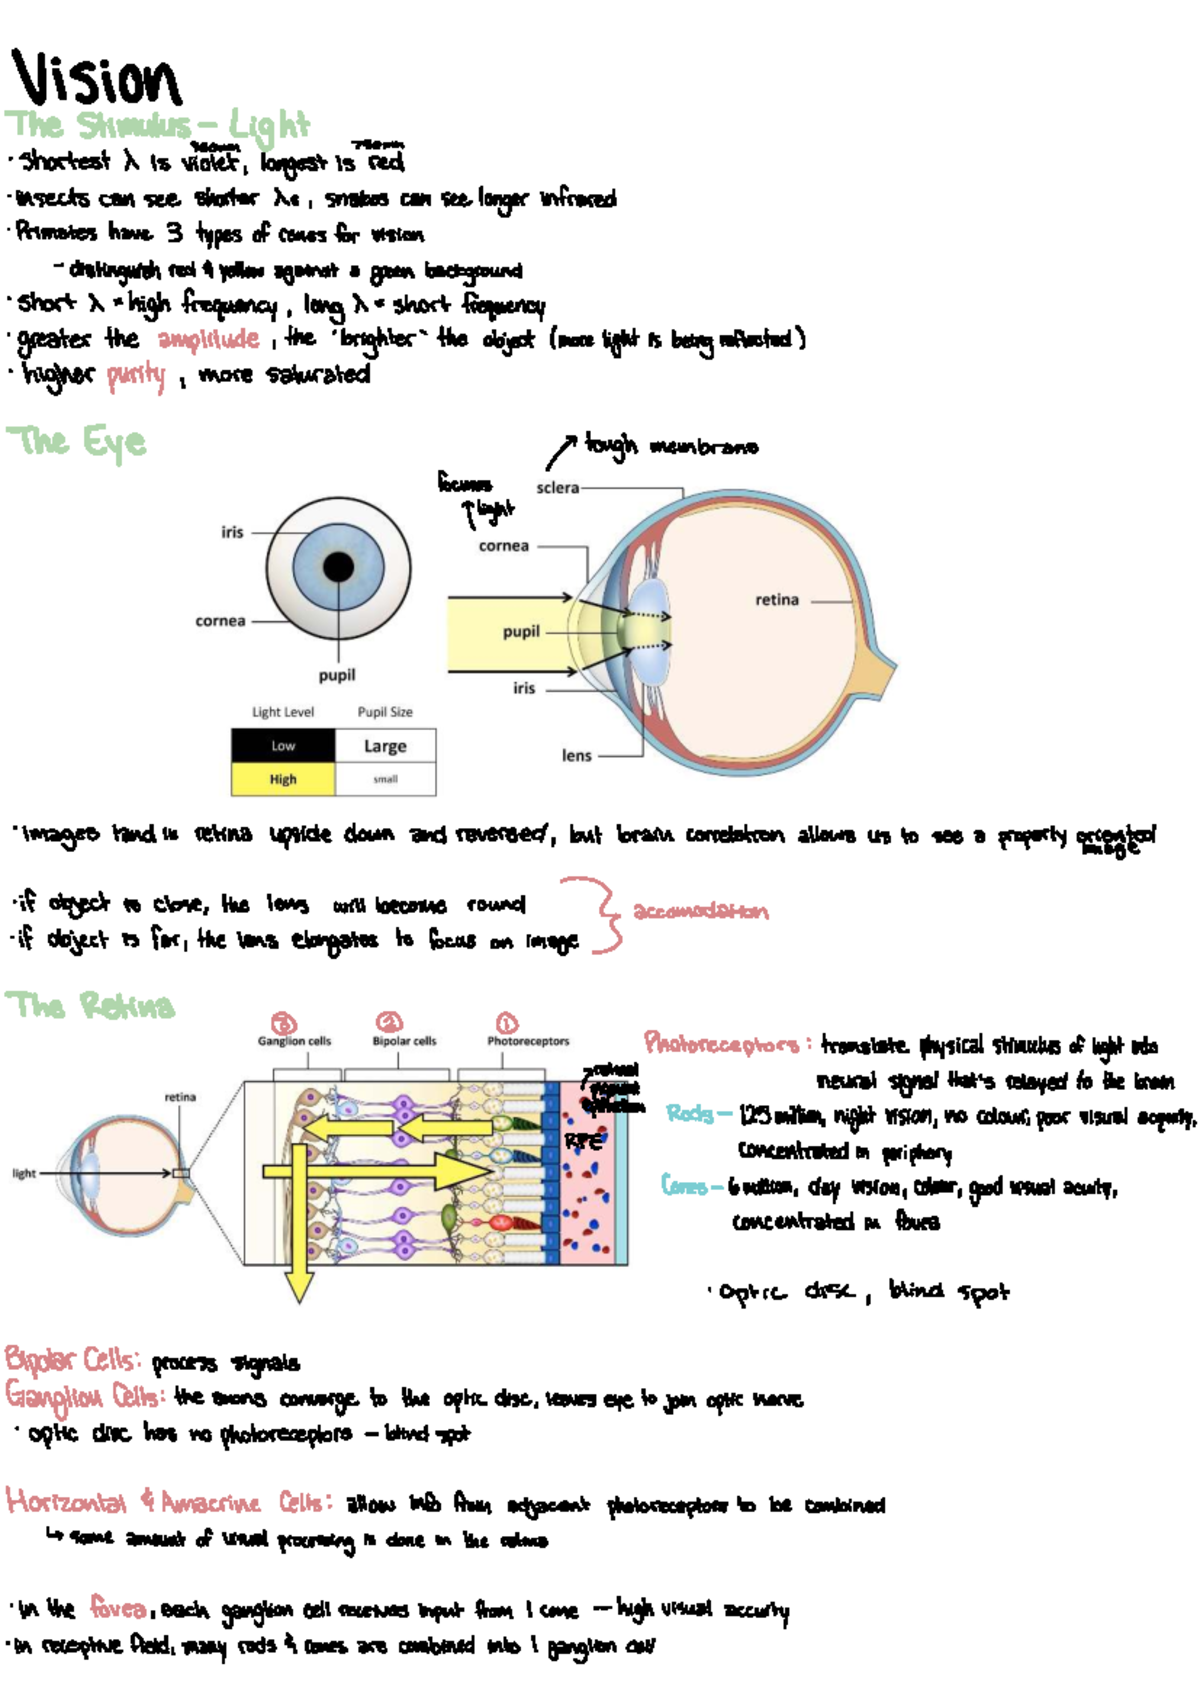 Vision
The Stimulus - Light
360nm 750nm
· Shortest λ is violet, longest is red
· insects can see shorter λs, snakes can see longer infrared
· Primates have 3 types of cones for vision
- distinguish red & yellow against a green background
· short λ = high frequency, long λ = short frequency
· greater the amplitude, the "brighter" the object (more light is being reflected)
· higher purity, more saturated
The Eye
→ tough membrane
focuses
↑ light
sclera
iris
cornea
retina
cornea
pupil
pupil
iris
Light Level Pupil Size
Low Large
High small
lens
· images land in retina upside down and reversed, but brain correlation allows us to see a properly oriented
image
· if object is close, the lens will become round
· if object is far, the lens elongates to focus on image
accomodation
The Retina
③ ② ①
Ganglion cells Bipolar cells Photoreceptors
retinal
pigment
epithelium
retina
light
RPE
Photoreceptors: translate physical stimulus of light into
neural signal that's relayed to the brain
Rods - 125 million, night vision, no colour, poor visual acuity,
concentrated in periphery
Cones - 6 million, day vision, colour, good visual acuity,
concentrated in fovea
· optic disc, blind spot
Bipolar Cells: process signals
Ganglion Cells: the axons converge to the optic disc, leaves eye to join optic nerve
· optic disc has no photoreceptors - blind spot
Horizontal & Amacrine Cells: allow info from adjacent photoreceptors to be combined
↳ some amount of visual processing is done in the retina
· in the fovea, each ganglion cell receives input from 1 cone - high visual accuity
· in receptive field, many rods & cones are combined into 1 ganglion cell